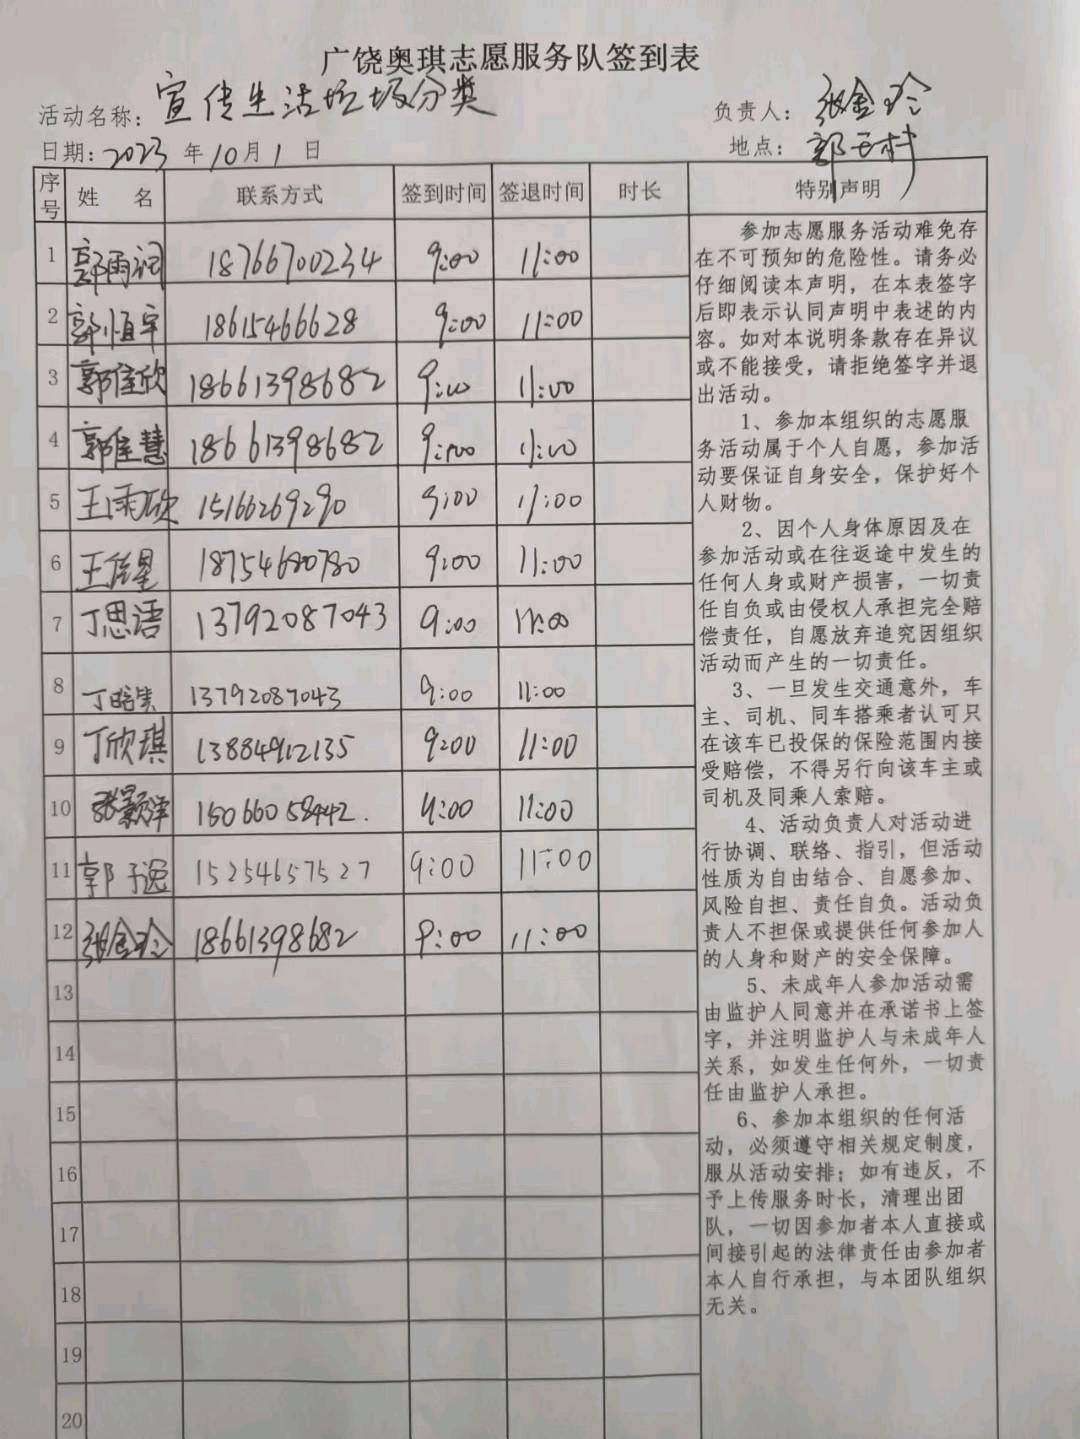 广饶奥琪志愿服务队签到表
活动名称：宣传生活垃圾分类 负责人：张金玲
日期：2023年10月1日 地点：郭王村
序号 姓 名 联系方式 签到时间 签退时间 时长 特别声明
1 郭雨润 18766700234 9:00 11:00
2 郭恒宇 18615466628 9:00 11:00
3 郭佳欣 18661398682 9:00 11:00
4 郭佳慧 18661398682 9:00 11:00
5 王雨欣 15166269290 9:00 11:00
6 王佳星 18754680780 9:00 11:00
7 丁思语 13792087043 9:00 11:00
8 丁 13792087043 9:00 11:00
9 丁欣琪 13884912135 9:00 11:00
10 张颢泽 15066058442. 9:00 11:00
11 郭子逸 15254657527 9:00 11:00
12 张金玲 18661398682 9:00 11:00
13
14
15
16
17
18
19
20
参加志愿服务活动难免存
在不可预知的危险性。请务必
仔细阅读本声明，在本表签字
后即表示认同声明中表述的内
容。如对本说明条款存在异议
或不能接受，请拒绝签字并退
出活动。
1、参加本组织的志愿服
务活动属于个人自愿，参加活
动要保证自身安全，保护好个
人财物。
2、因个人身体原因及在
参加活动或在往返途中发生的
任何人身或财产损害，一切责
任自负或由侵权人承担完全赔
偿责任，自愿放弃追究因组织
活动而产生的一切责任。
3、一旦发生交通意外，车
主、司机、同车搭乘者认可只
在该车已投保的保险范围内接
受赔偿，不得另行向该车主或
司机及同乘人索赔。
4、活动负责人对活动进
行协调、联络、指引，但活动
性质为自由结合、自愿参加、
风险自担、责任自负。活动负
责人不担保或提供任何参加人
的人身和财产的安全保障。
5、未成年人参加活动需
由监护人同意并在承诺书上签
字，并注明监护人与未成年人
关系，如发生任何外，一切责
任由监护人承担。
6、参加本组织的任何活
动，必须遵守相关规定制度，
服从活动安排；如有违反，不
予上传服务时长，清理出团
队，一切因参加者本人直接或
间接引起的法律责任由参加者
本人自行承担，与本团队组织
无关。